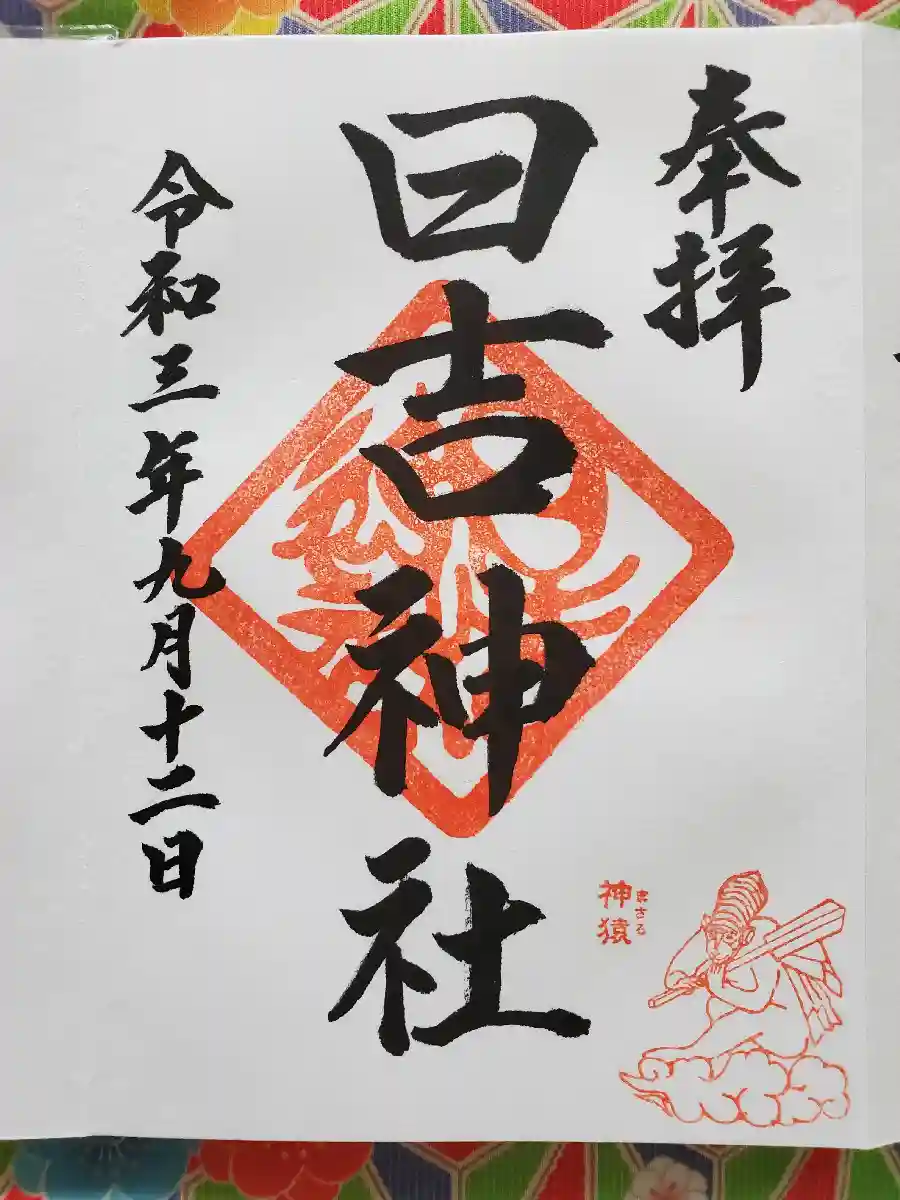 奉拝
日吉神社
令和三年九月十二日
まさる
神猿